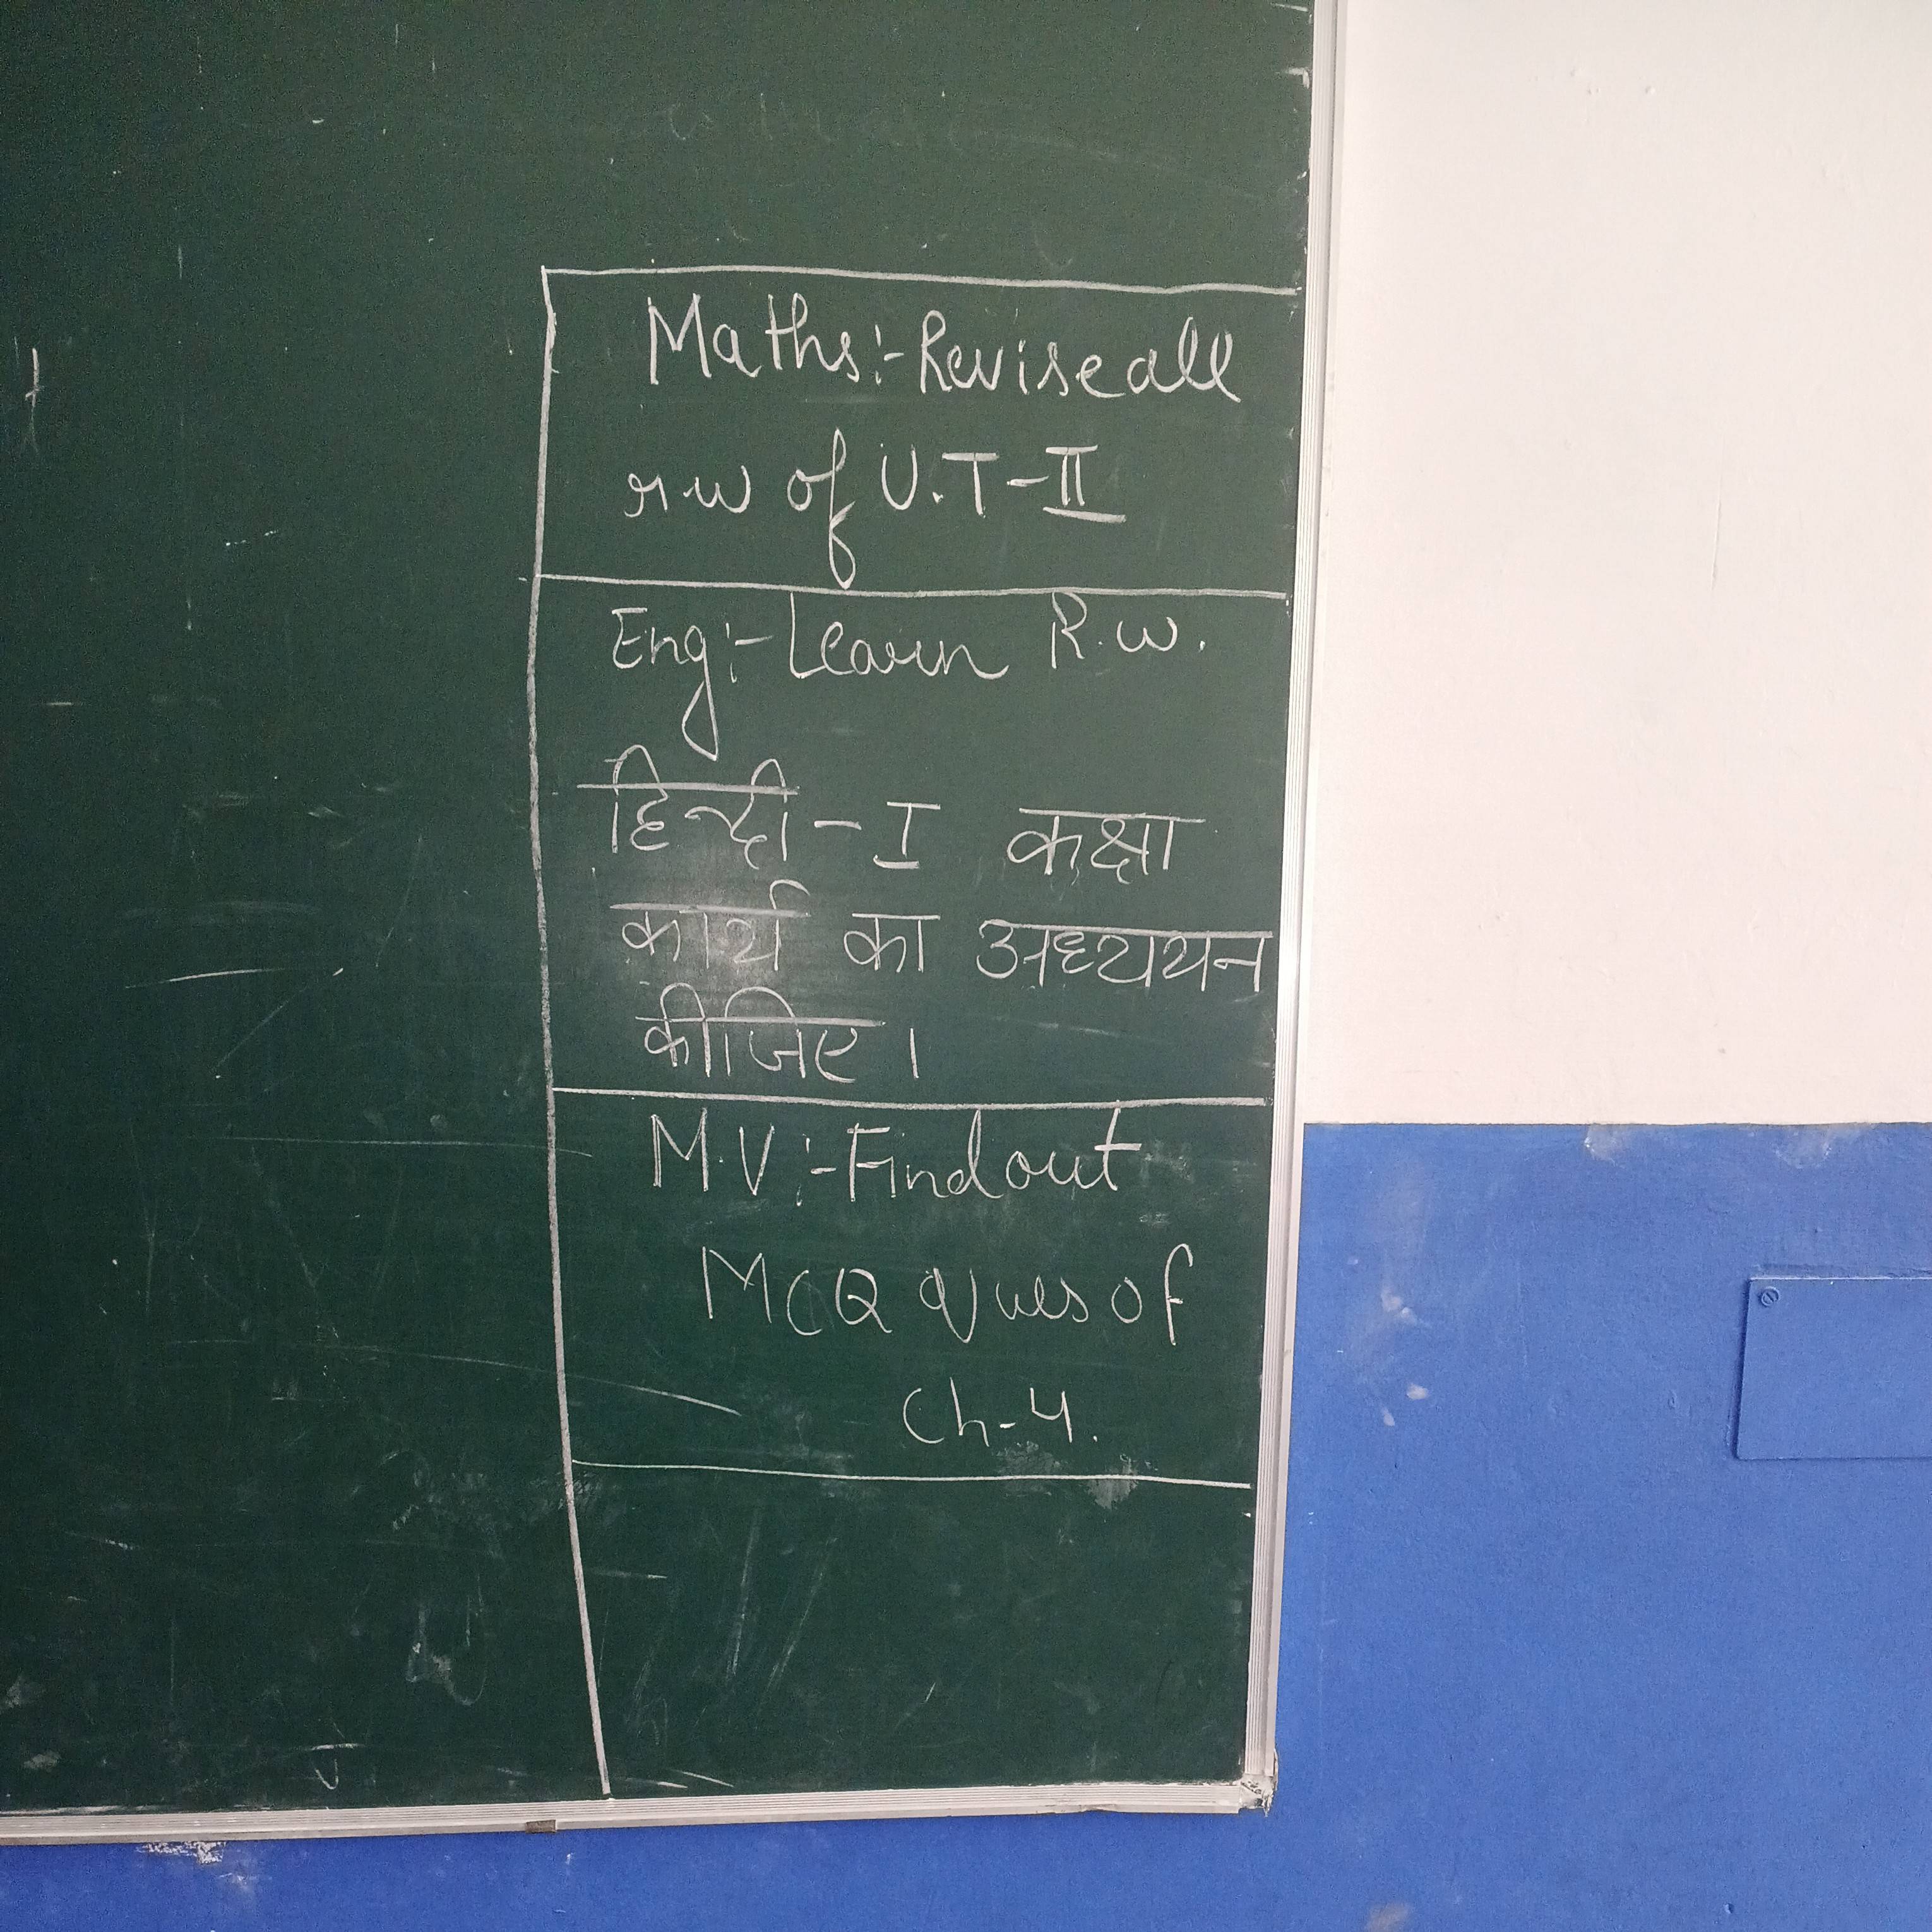 Maths:- Revise all
r.w of U.T-II
Eng:- Learn R.w.
हिन्दी - I कक्षा
कार्य का अध्ययन
कीजिए।
M.V:- Find out
MCQ ques of
Ch-4.